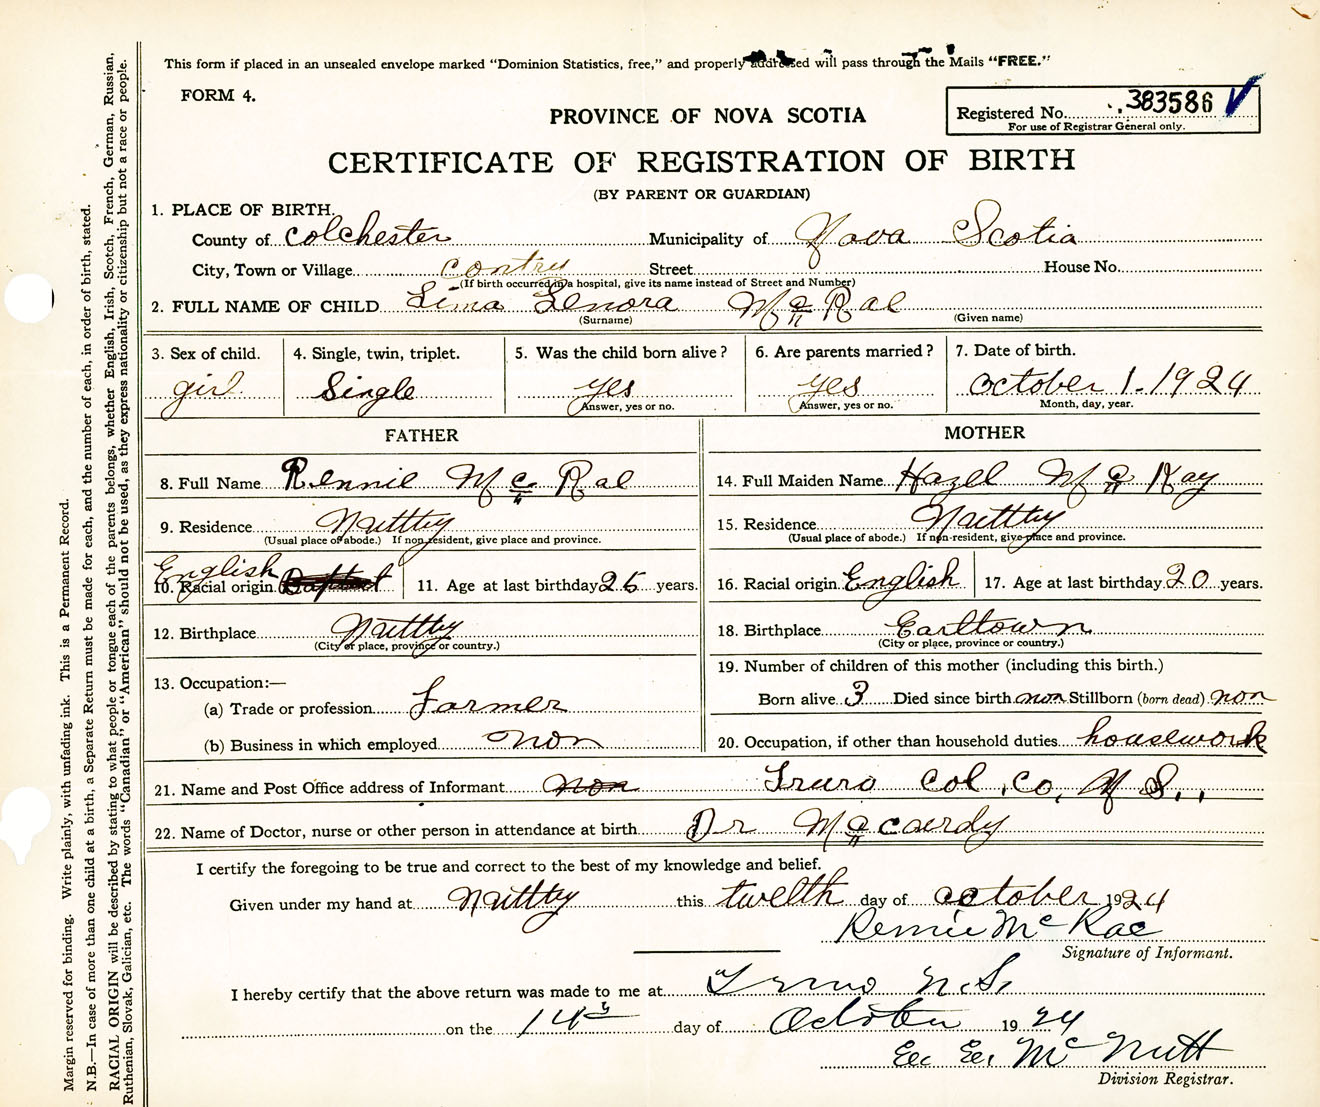 This form if placed in an unsealed envelope marked "Dominion Statistics, free," and properly addressed will pass through the Mails "FREE."
FORM 4.
PROVINCE OF NOVA SCOTIA
Registered No. 383586
For use of Registrar General only.
CERTIFICATE OF REGISTRATION OF BIRTH
(BY PARENT OR GUARDIAN)
1. PLACE OF BIRTH.
County of Colchester Municipality of Nova Scotia
City, Town or Village contry Street House No.
(If birth occurred in a hospital, give its name instead of Street and Number)
2. FULL NAME OF CHILD Lima Lenora McRae
(Surname) (Given name)
3. Sex of child. 4. Single, twin, triplet. 5. Was the child born alive? 6. Are parents married? 7. Date of birth.
girl Single yes yes october 1-1924
Answer, yes or no. Answer, yes or no. Month, day, year.
FATHER MOTHER
8. Full Name Rennie McRae 14. Full Maiden Name Hazel McKay
9. Residence Nuttby 15. Residence Nuttby
(Usual place of abode.) If non-resident, give place and province. (Usual place of abode.) If non-resident, give place and province.
English
10. Racial origin Baptist 11. Age at last birthday 26 years. 16. Racial origin English 17. Age at last birthday 20 years.
12. Birthplace Nuttby 18. Birthplace Earltown
(City or place, province or country.) (City or place, province or country.)
13. Occupation:— 19. Number of children of this mother (including this birth.)
(a) Trade or profession Farmer Born alive 3 Died since birth non Stillborn (born dead) non
(b) Business in which employed non 20. Occupation, if other than household duties housework
21. Name and Post Office address of Informant non Truro Col. Co, N S.
22. Name of Doctor, nurse or other person in attendance at birth Dr
I certify the foregoing to be true and correct to the best of my knowledge and belief.
Given under my hand at Nuttby this twelth day of october 1924
Rennie McRae
Signature of Informant.
I hereby certify that the above return was made to me at Truro N.S.
on the 14th day of October 1924
McNutt
Division Registrar.
Margin reserved for binding. Write plainly, with unfading ink. This is a Permanent Record.
N.B.—In case of more than one child at a birth, a Separate Return must be made for each, and the number of each, in order of birth, stated.
RACIAL ORIGIN will be described by stating to what people or tongue each of the parents belongs, whether English, Irish, Scotch, French, German, Russian,
Ruthenian, Slovak, Galician, etc. The words "Canadian" or "American" should not be used, as they express nationality or citizenship but not a race or people.